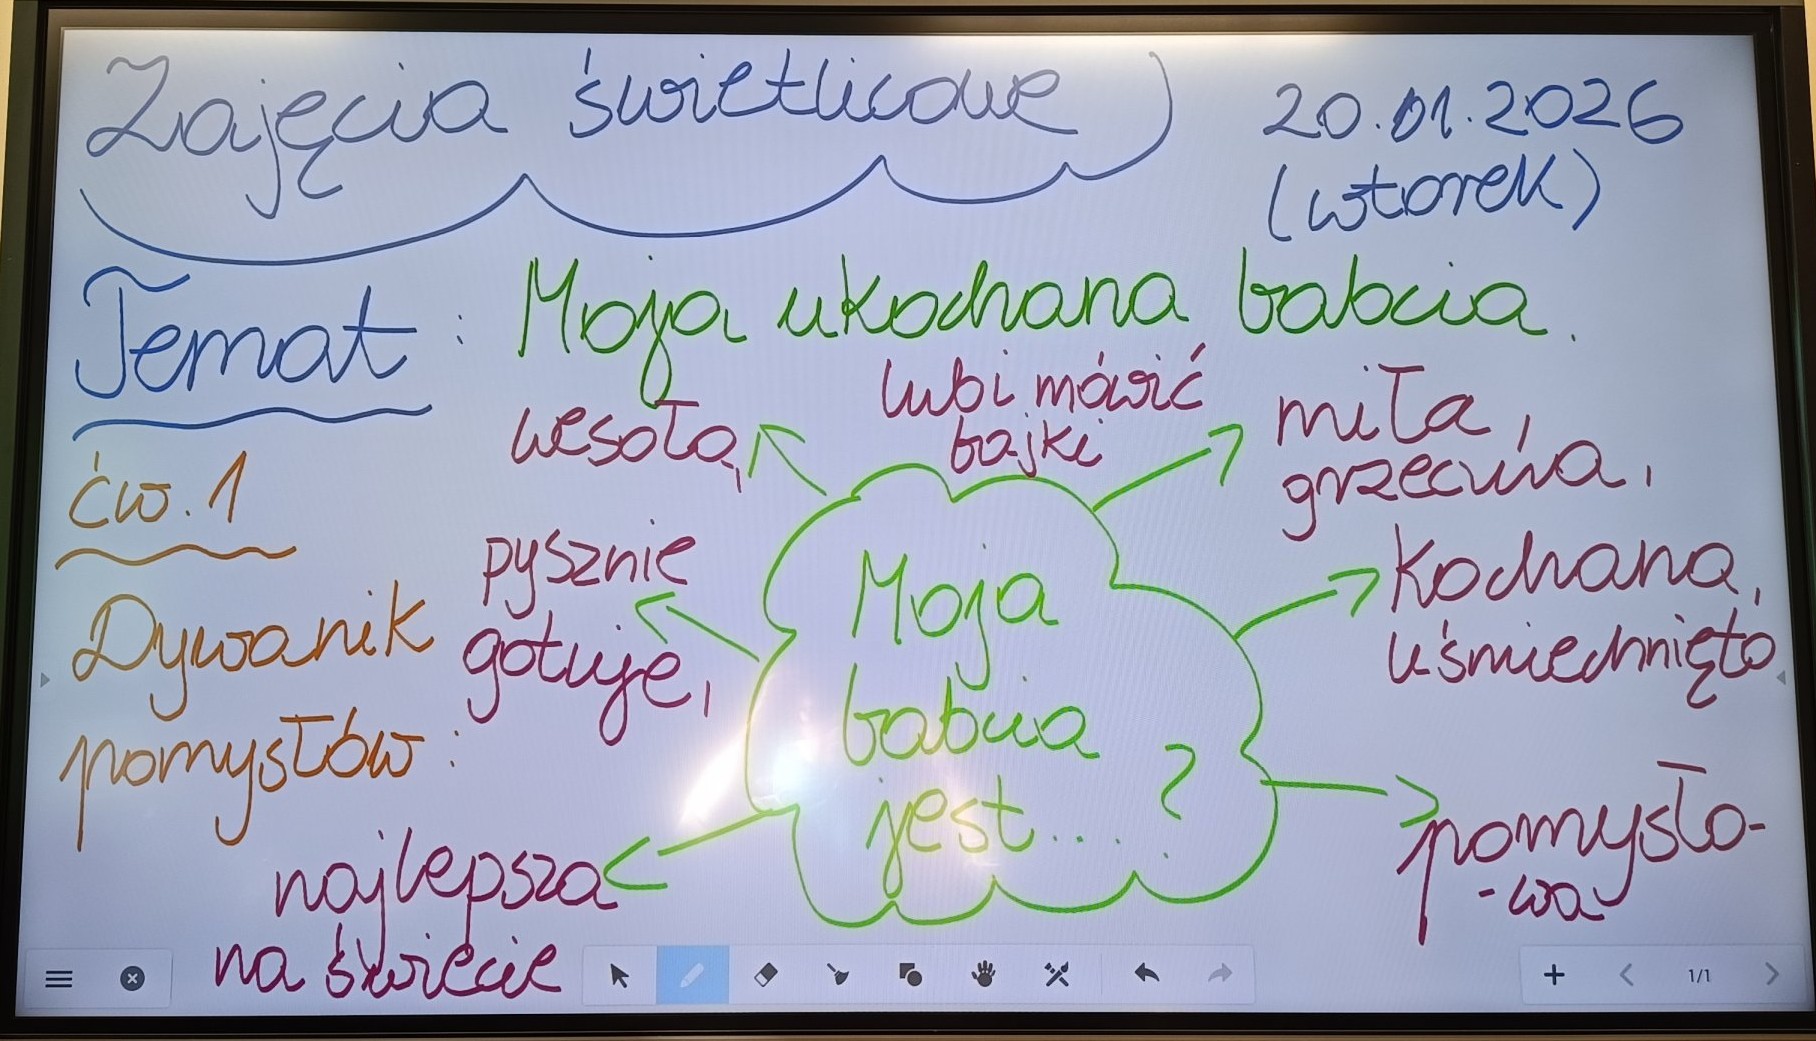 Zajęcia świetlicowe
20.01.2026
(wtorek)
Temat: Moja ukochana babcia.
ćw. 1
Dywanik
pomysłów:
wesoła,
lubi mówić
bajki
miła,
grzeczna,
pysznie
gotuje,
Kochana,
uśmiechnięta
Moja
babcia
jest...?
najlepsza
na świecie
pomysło-
-wa
1/1